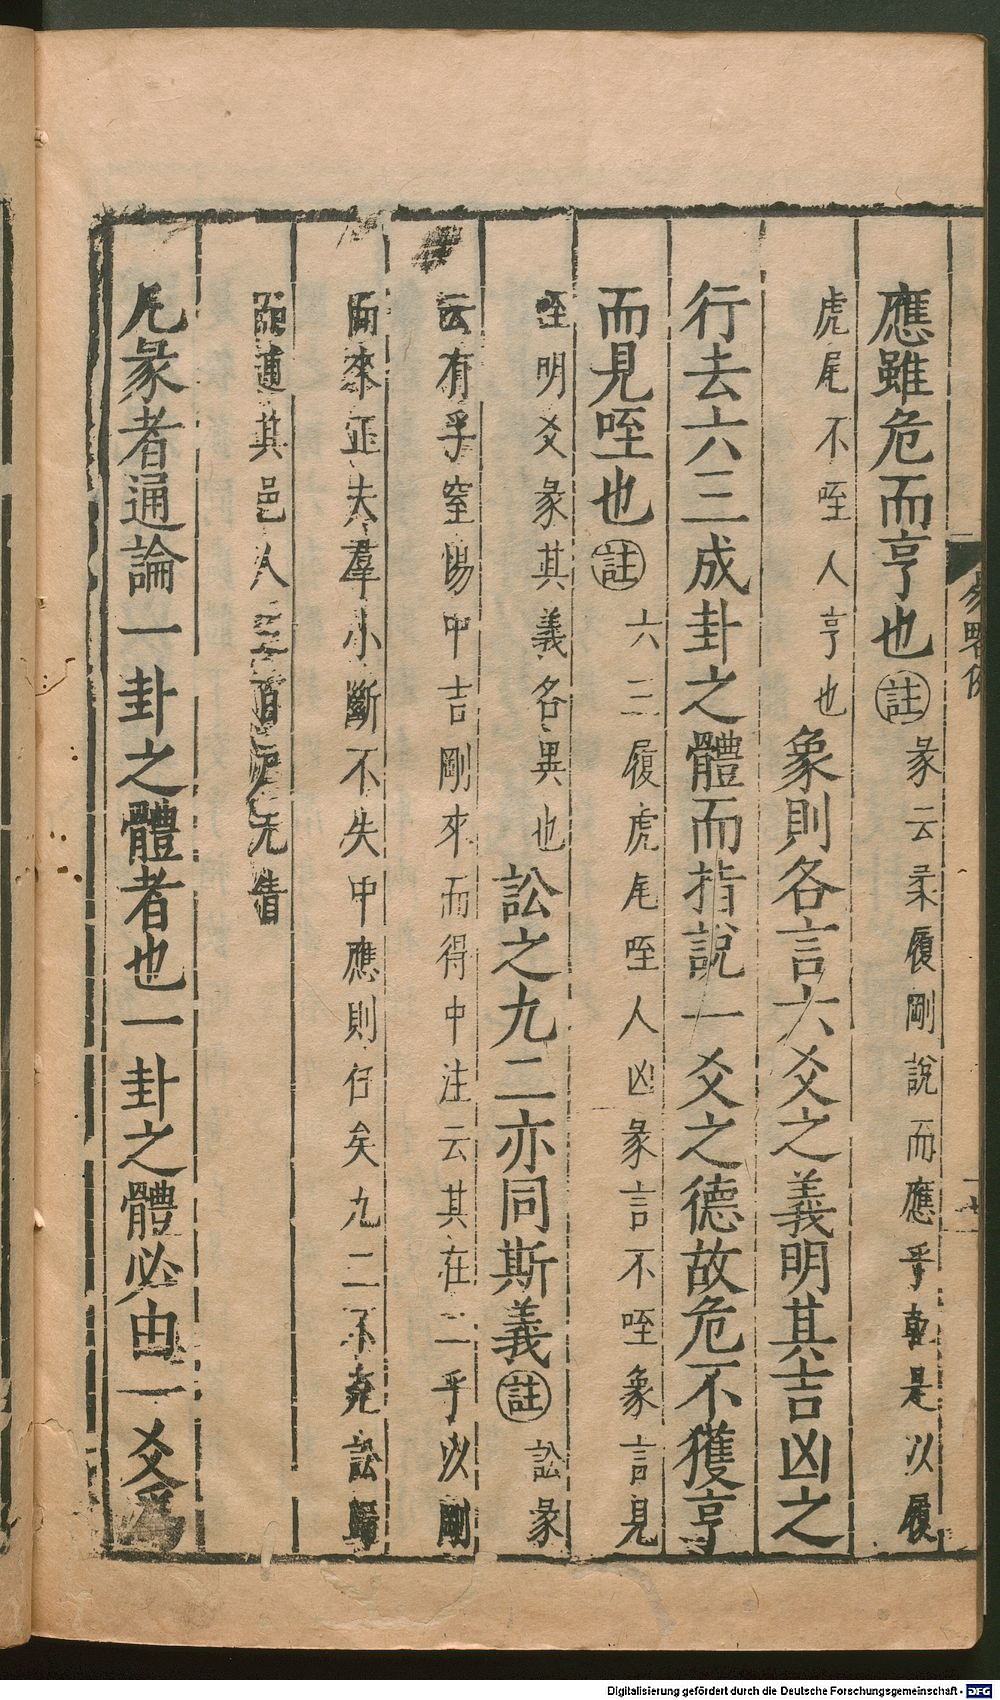 應雖危而亨也註彖云柔履剛說而應乎乾是以履
虎尾不咥人亨也象則各言六爻之義明其吉凶之
行去六三成卦之體而指說一爻之德故危不獲亨
而見咥也註六三履虎尾咥人凶彖言不咥象言見
咥明爻彖其義各異也訟之九二亦同斯義註訟彖
云有孚窒惕中吉剛來而得中注云其在二乎以剛
而來正夫羣小斷不失中應則仔矣九二不堯訟歸
而逋其邑人三百戶无眚
凡彖者通論一卦之體者也一卦之體必由一爻爲
Digitalisierung gefördert durch die Deutsche Forschungsgemeinschaft - DFG